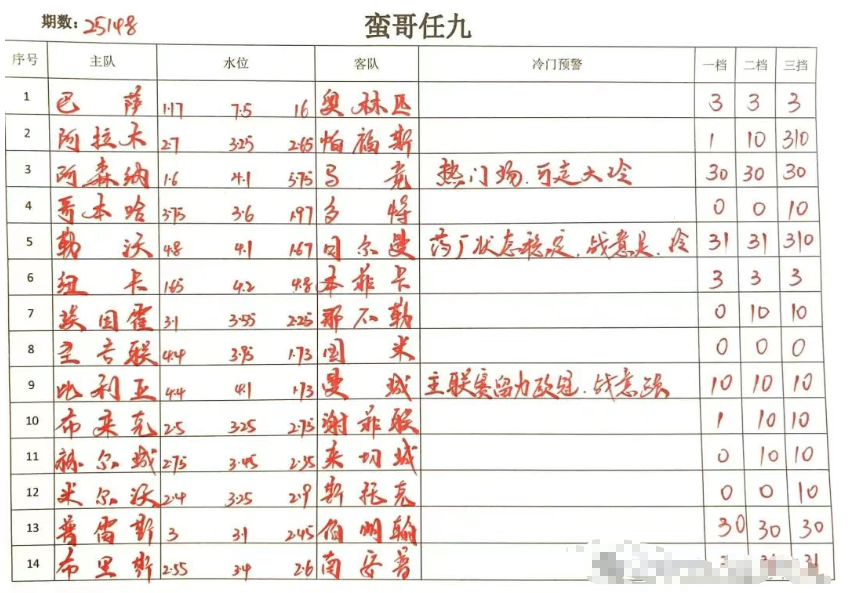 期数: 25148 蛮哥任九
序号 主队 水位 客队 冷门预警 一档 二档 三档
1 巴萨 1.17 7.5 16 奥林匹 3 3 3
2 阿拉木 2.7 3.25 2.65 帕福斯 1 10 310
3 阿森纳 1.6 4.1 5.75 马竞 热门场.可走大冷 30 30 30
4 哥本哈 3.75 3.6 1.97 多特 0 0 10
5 勒沃 4.8 4.1 1.67 贝尔曼 药厂状态稳定.战意足.冷 31 31 310
6 纽卡 1.65 4.2 4.8 本菲卡 3 3 3
7 埃因霍 3.1 3.55 2.25 那不勒 0 10 10
8 圣吉联 4.4 3.95 1.73 国米 0 0 0
9 比利亚 4.4 4.1 1.73 曼城 主联赛留力欧冠.战意强 10 10 10
10 布莱克 2.5 3.25 2.75 谢菲联 1 10 10
11 赫尔城 2.75 3.45 2.35 来切城 0 10 10
12 米尔沃 2.4 3.25 2.9 斯托克 0 0 10
13 普雷斯 3 3.1 2.45 伯明翰 30 30 30
14 布里斯 2.55 3.4 2.6 南安普 31